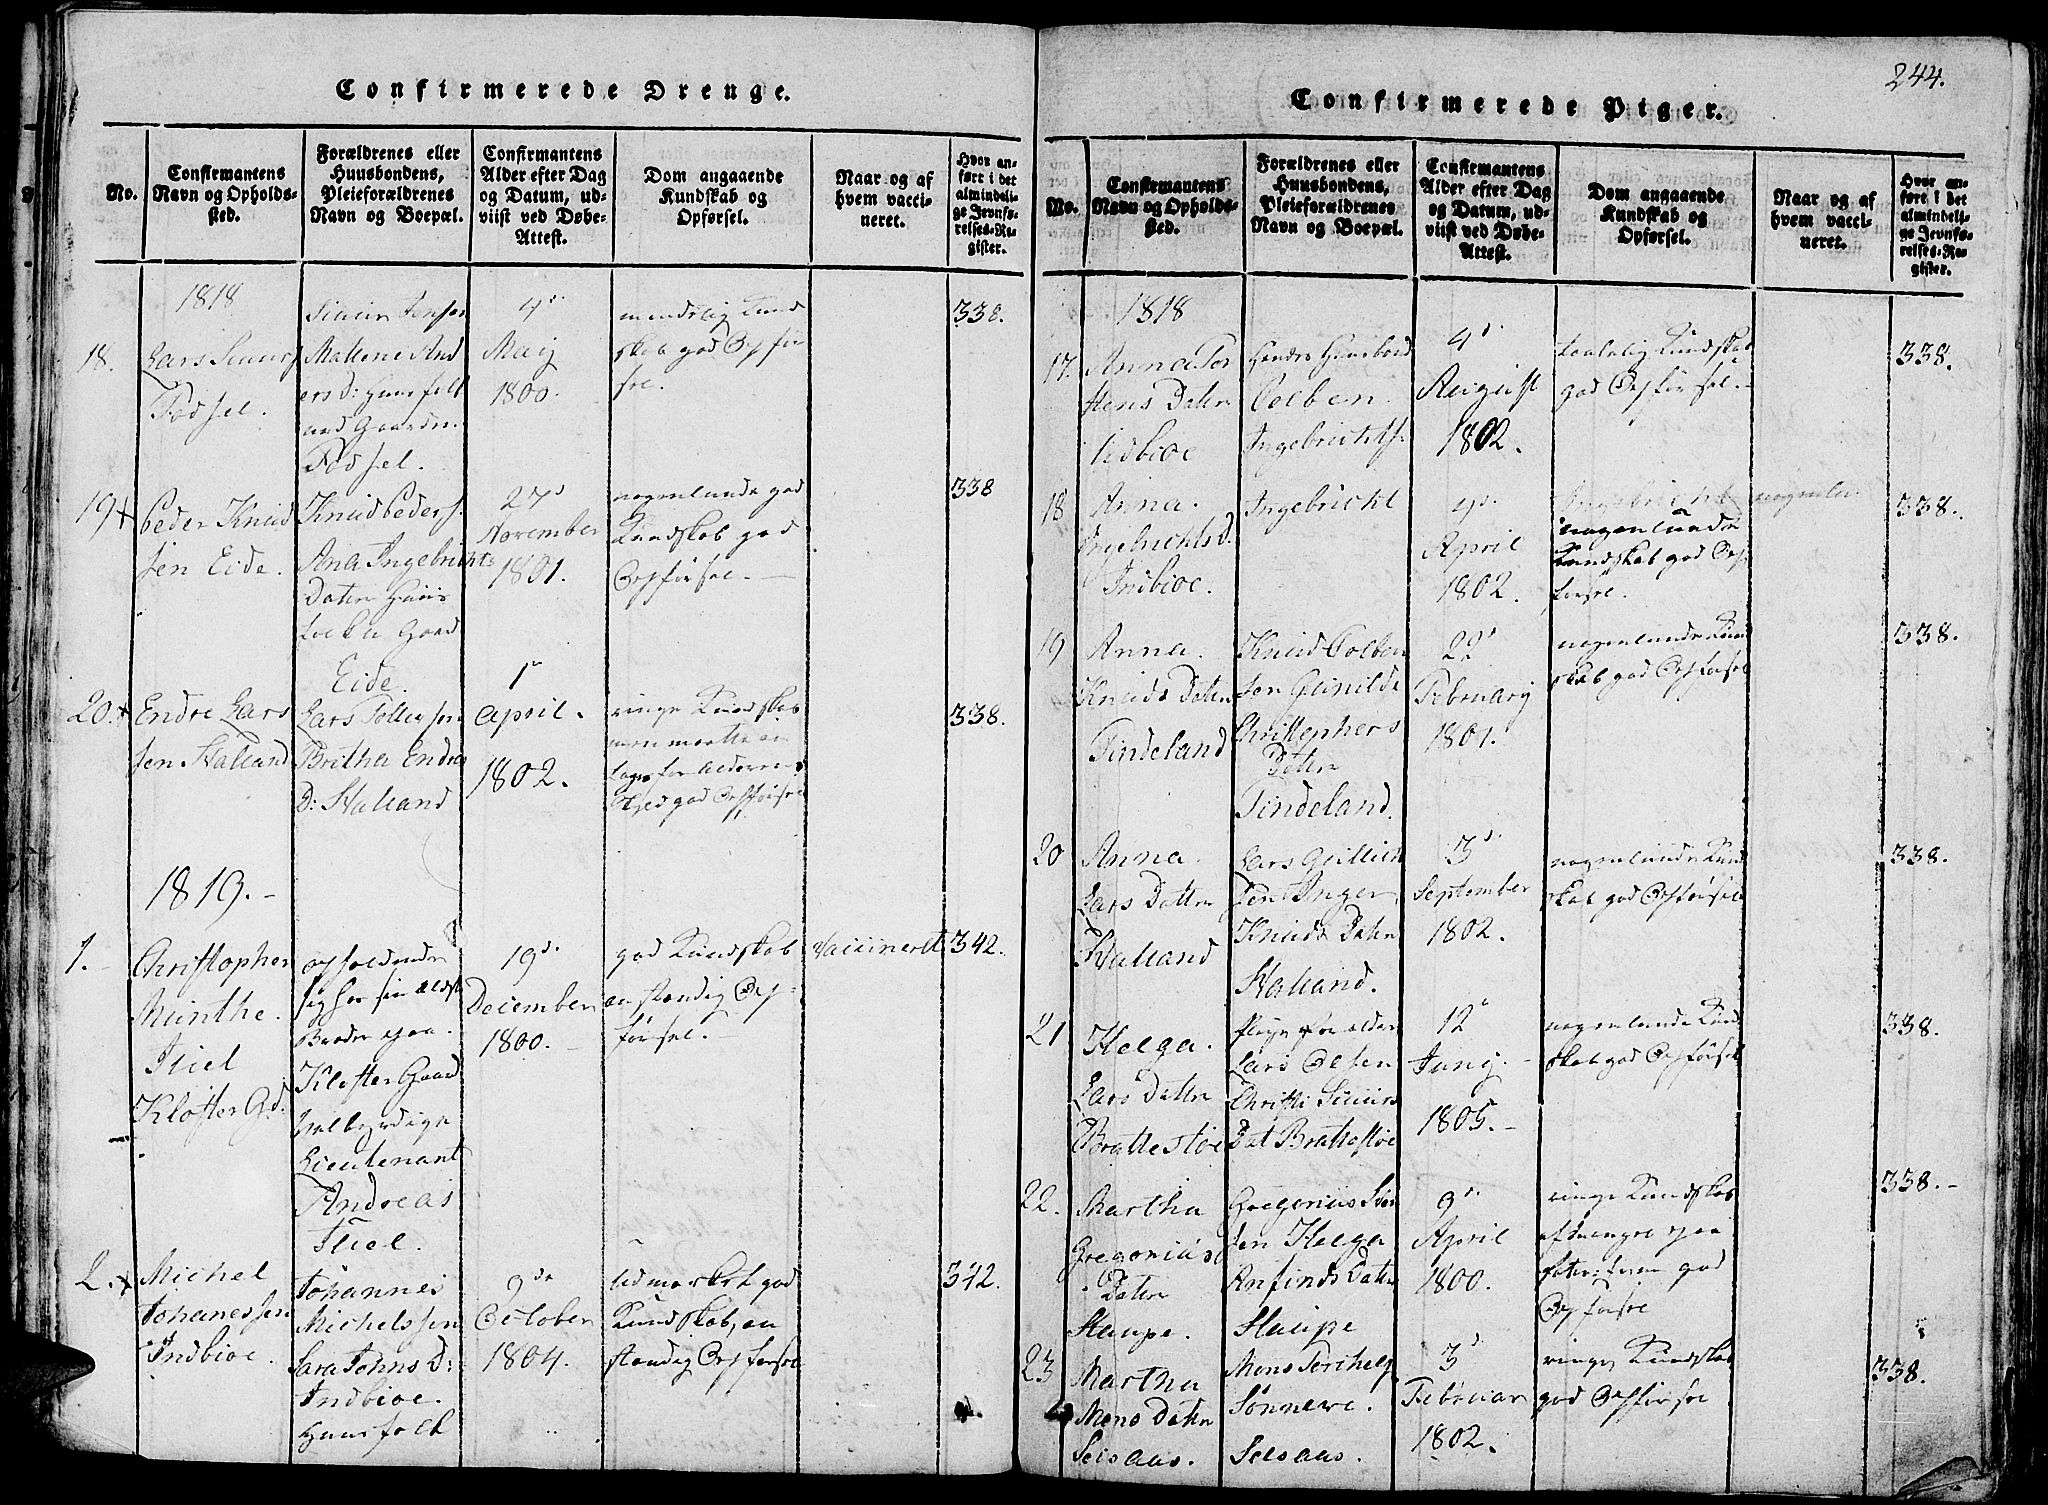 Confirmerede Drenge.
No.
Confirmantens
Navn og Opholds-
sted.
Forældrenes eller
Huusbondens,
Pleieforældrenes
Navn og Boepæl.
Confirmantens
Alder efter Dag
og Datum, ud-
viist ved Døbe-
Attest.
Dom angaaende
Kundskab og
Opførsel.
Naar og af
hvem vacci-
neret.
Hvor an-
ført i det
almindeli-
ge Jevnfø-
relses-Re-
gister.
1818
18.
Lars
Födsel.
Mallene And
ers D:
Födsel.
4de
May
1800.
Kund
skab god Opfør
sel.
338.
19+
Peder Knud
sen Eide.
Knud Peders.
Ana Ingebrichts
Dater Huus
folk Gaard
Eide.
27d
November
1801.
nogenlunde god
Kundskab god
Opførsel.
338
20.+
Endre Lars
sen Halland
Lars Tollevsen
Britha Endre
D: Halland
1e
April.
1802.
ringe Kundskab
god Opførsel
338.
1819.-
1.
Christopher
Munthe
Kloster Gd.
opholdende
sig hos sin ældste
Broder paa
Kloster Gaard
velbyrdige
Lieutenant
Andreas
19d.
December
1800.
god Kundskab
anstændig Op-
førsel.-
Vaccineret
342.
2.+
Michel
Johanessen
Indbioe.
Johannes
Michelssen
Sara Johns D:
Indbioe.
Huusfolk
9de
October
1804.
Udmærket god
Kundskab, an
stændig Opførsel
342.
244.
Confirmerede Piger.
No.
Confirmantens
Navn og Opholds-
sted.
Forældrenes eller
Huusbondens,
Pleieforældrenes
Navn og Boepæl.
Confirmantens
Alder efter Dag
og Datum, ud-
viist ved Døbe-
Attest.
Dom angaaende
Kundskab og
Opførsel.
Naar og af
hvem vacci-
neret.
Hvor an-
ført i det
almindeli-
ge Jevnfø-
relses-Re-
gister.
1818
17.
Anna Tor
stens Dater
Indbioe
Hendes Huusbond
Colben
Ingebrichts.
4d.
August
1802.
taalelig Kundskab
god Opførsel.-
338.
18
Anna.
Ingebrichts D.
Indbioe.
Ingebricht
4d.
April
1802.
nogenlunde
Kundskab god Op
førsel.
338.
19
Anna.
Knuds Dater
Tindeland
Knud Colben
sen Gunilde
Christophers
Dater
Tindeland.
22d
February
1801.
nogenlunde Kund
skab god Opførsel
338.
20
Anna.
Lars Datter
Halland
Lars Gullich
sen Inger
Knuds Dater
Halland.
3d.
September
1802.
nogenlunde Kund
skab god Opførsel
338.
21
Helga.
Lars Datter
Brattestöe
Pleye forælder
Lars Olsen
Christi Siuurs
Dat Brattestöe
12e
Juny.
1805.-
nogenlunde Kund
skab god Opførsel
338.
22.
Martha
Gregoriuse
Dater
Staupe.
Gregorius Iver
sen Helga
Anfinds Dater
Staupe
9d.
April
1800.
ringe Kundskab
god
Opførsel
338.-
23
Martha
Mons Dater
Selsaas.
Mons Torkels
Sönneve.
Selsaas.
3d
Februar
1802.
ringe Kundskab
god Opførsel
338.